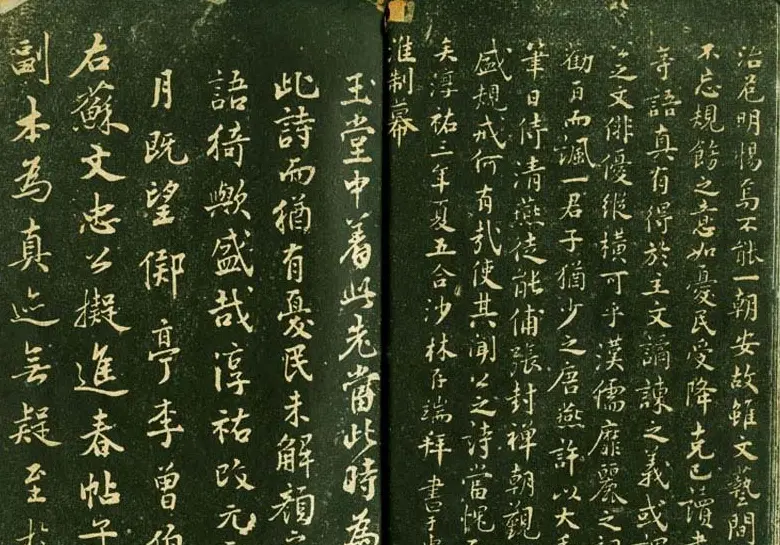 治苞明惕焉不能一朝安故雖文藝間
不忘規飭之意如憂民受降克己讀書
等語真有得於主文譎諫之義或謂
公之文俳優縱横可乎漢儒靡麗之詞
勸百而諷一君子猶少之唐燕許以大手
筆日侍清燕徒能俌張封禅朝覲
盛規戒何有哉使其聞公之詩當愧
矣淳祐三年夏五合沙林存端拜書于
淮制幕
玉堂中著此先當此時為
此詩而猶有憂民未解顔之
語猗歟盛哉淳祐改元
月既望鄮亭李曾伯
右蘇文忠公擬進春帖子
副本為真迹無疑至於